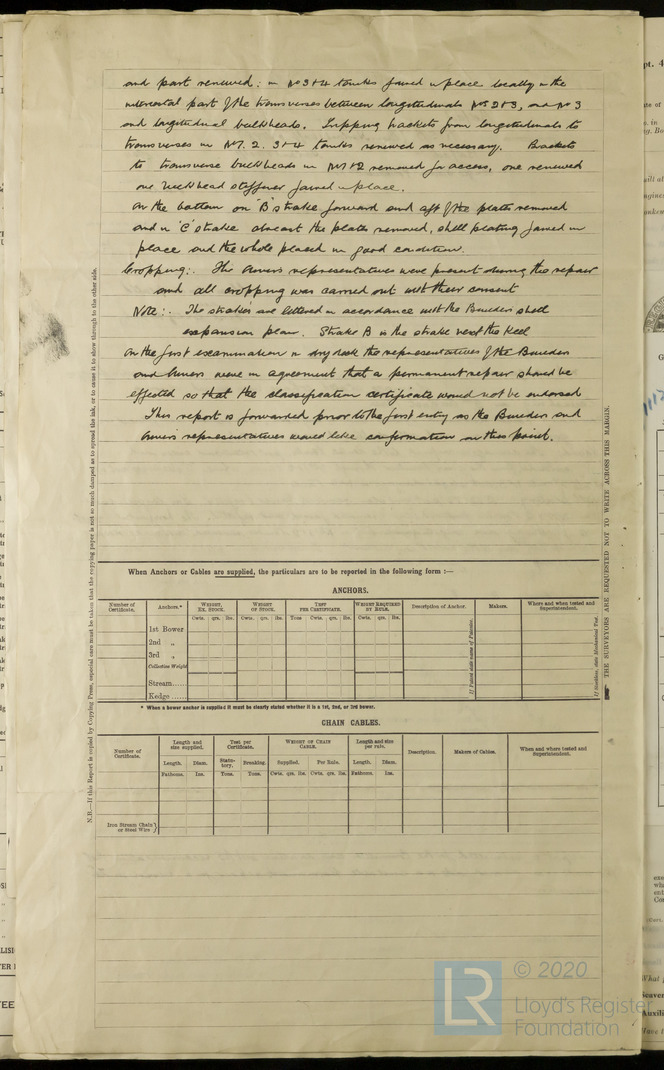 and part renewed: in Nos 3 & 4 tanks faired in place locally in the
intercostal part of the transverses between longitudinals Nos 2 & 3, and No 3
and longitudinal bulkheads. Tripping brackets from longitudinals to
transverses in No 1. 2. 3 & 4 tanks renewed as necessary. Brackets
to transverse bulkheads in No 1 & 2 removed for access, one renewed
one bulkhead stiffener faired in place.
On the bottom on 'B' strake forward and aft of the plates removed
and in 'C' strake abreast the plates removed, shell plating faired in
place and the whole placed in good condition.
Cropping:. The Owners representatives were present during the repair
and all cropping was carried out with their consent
Note:. The strakes are lettered in accordance with the Builders shell
expansion plan. Strake B is the strake next the Keel
On the first examination in dry dock the representatives of the Builders
and Owners were in agreement that a permanent repair should be
effected so that the classification certificate would not be endorsed
This report is forwarded prior to the first entry as the Builders and
Owners representatives would like confirmation on this point.
When Anchors or Cables are supplied, the particulars are to be reported in the following form :—
ANCHORS.
Number of Certificate. Anchors.* WEIGHT, EX. STOCK. WEIGHT OF STOCK. TEST PER CERTIFICATE. WEIGHT REQUIRED BY RULE. Description of Anchor. Makers. Where and when tested and Superintendent.
Cwts. qrs. lbs. Cwts. qrs. lbs. Tons Cwts. qrs. lbs. Cwts. qrs. lbs.
1st Bower
2nd „
3rd „
Collective Weight
Stream
Kedge
* When a bower anchor is supplied it must be clearly stated whether it is a 1st, 2nd, or 3rd bower.
CHAIN CABLES.
Number of Certificate. Length and size supplied. Test per Certificate. WEIGHT OF CHAIN CABLE. Length and size per rule. Description. Makers of Cables. When and where tested and Superintendent.
Length. Diam. Statutory. Breaking. Supplied. Per Rule. Length. Diam.
Fathoms. Ins. Tons. Tons. Cwts. qrs. lbs. Cwts. qrs. lbs. Fathoms. Ins.
Iron Stream Chain
or Steel Wire
N.B.—If this Report is copied by Copying Press, especial care must be taken that the copying paper is not so much damped as to spread the ink, or to cause it to show through to the other side.
THE SURVEYORS ARE REQUESTED NOT TO WRITE ACROSS THIS MARGIN.
LR
© 2020
Lloyd's Register
Foundation